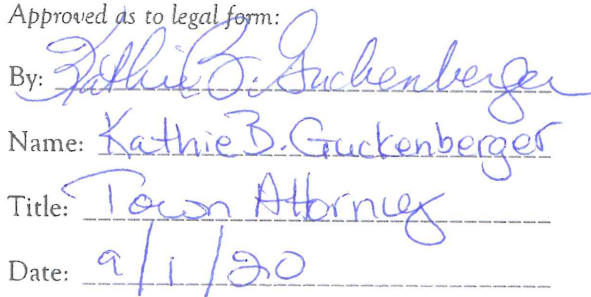 Approved as to legal form:
By: Kathie B. Guckenberger
Name: Kathie B. Guckenberger
Title: Town Attorney
Date: 9/1/20